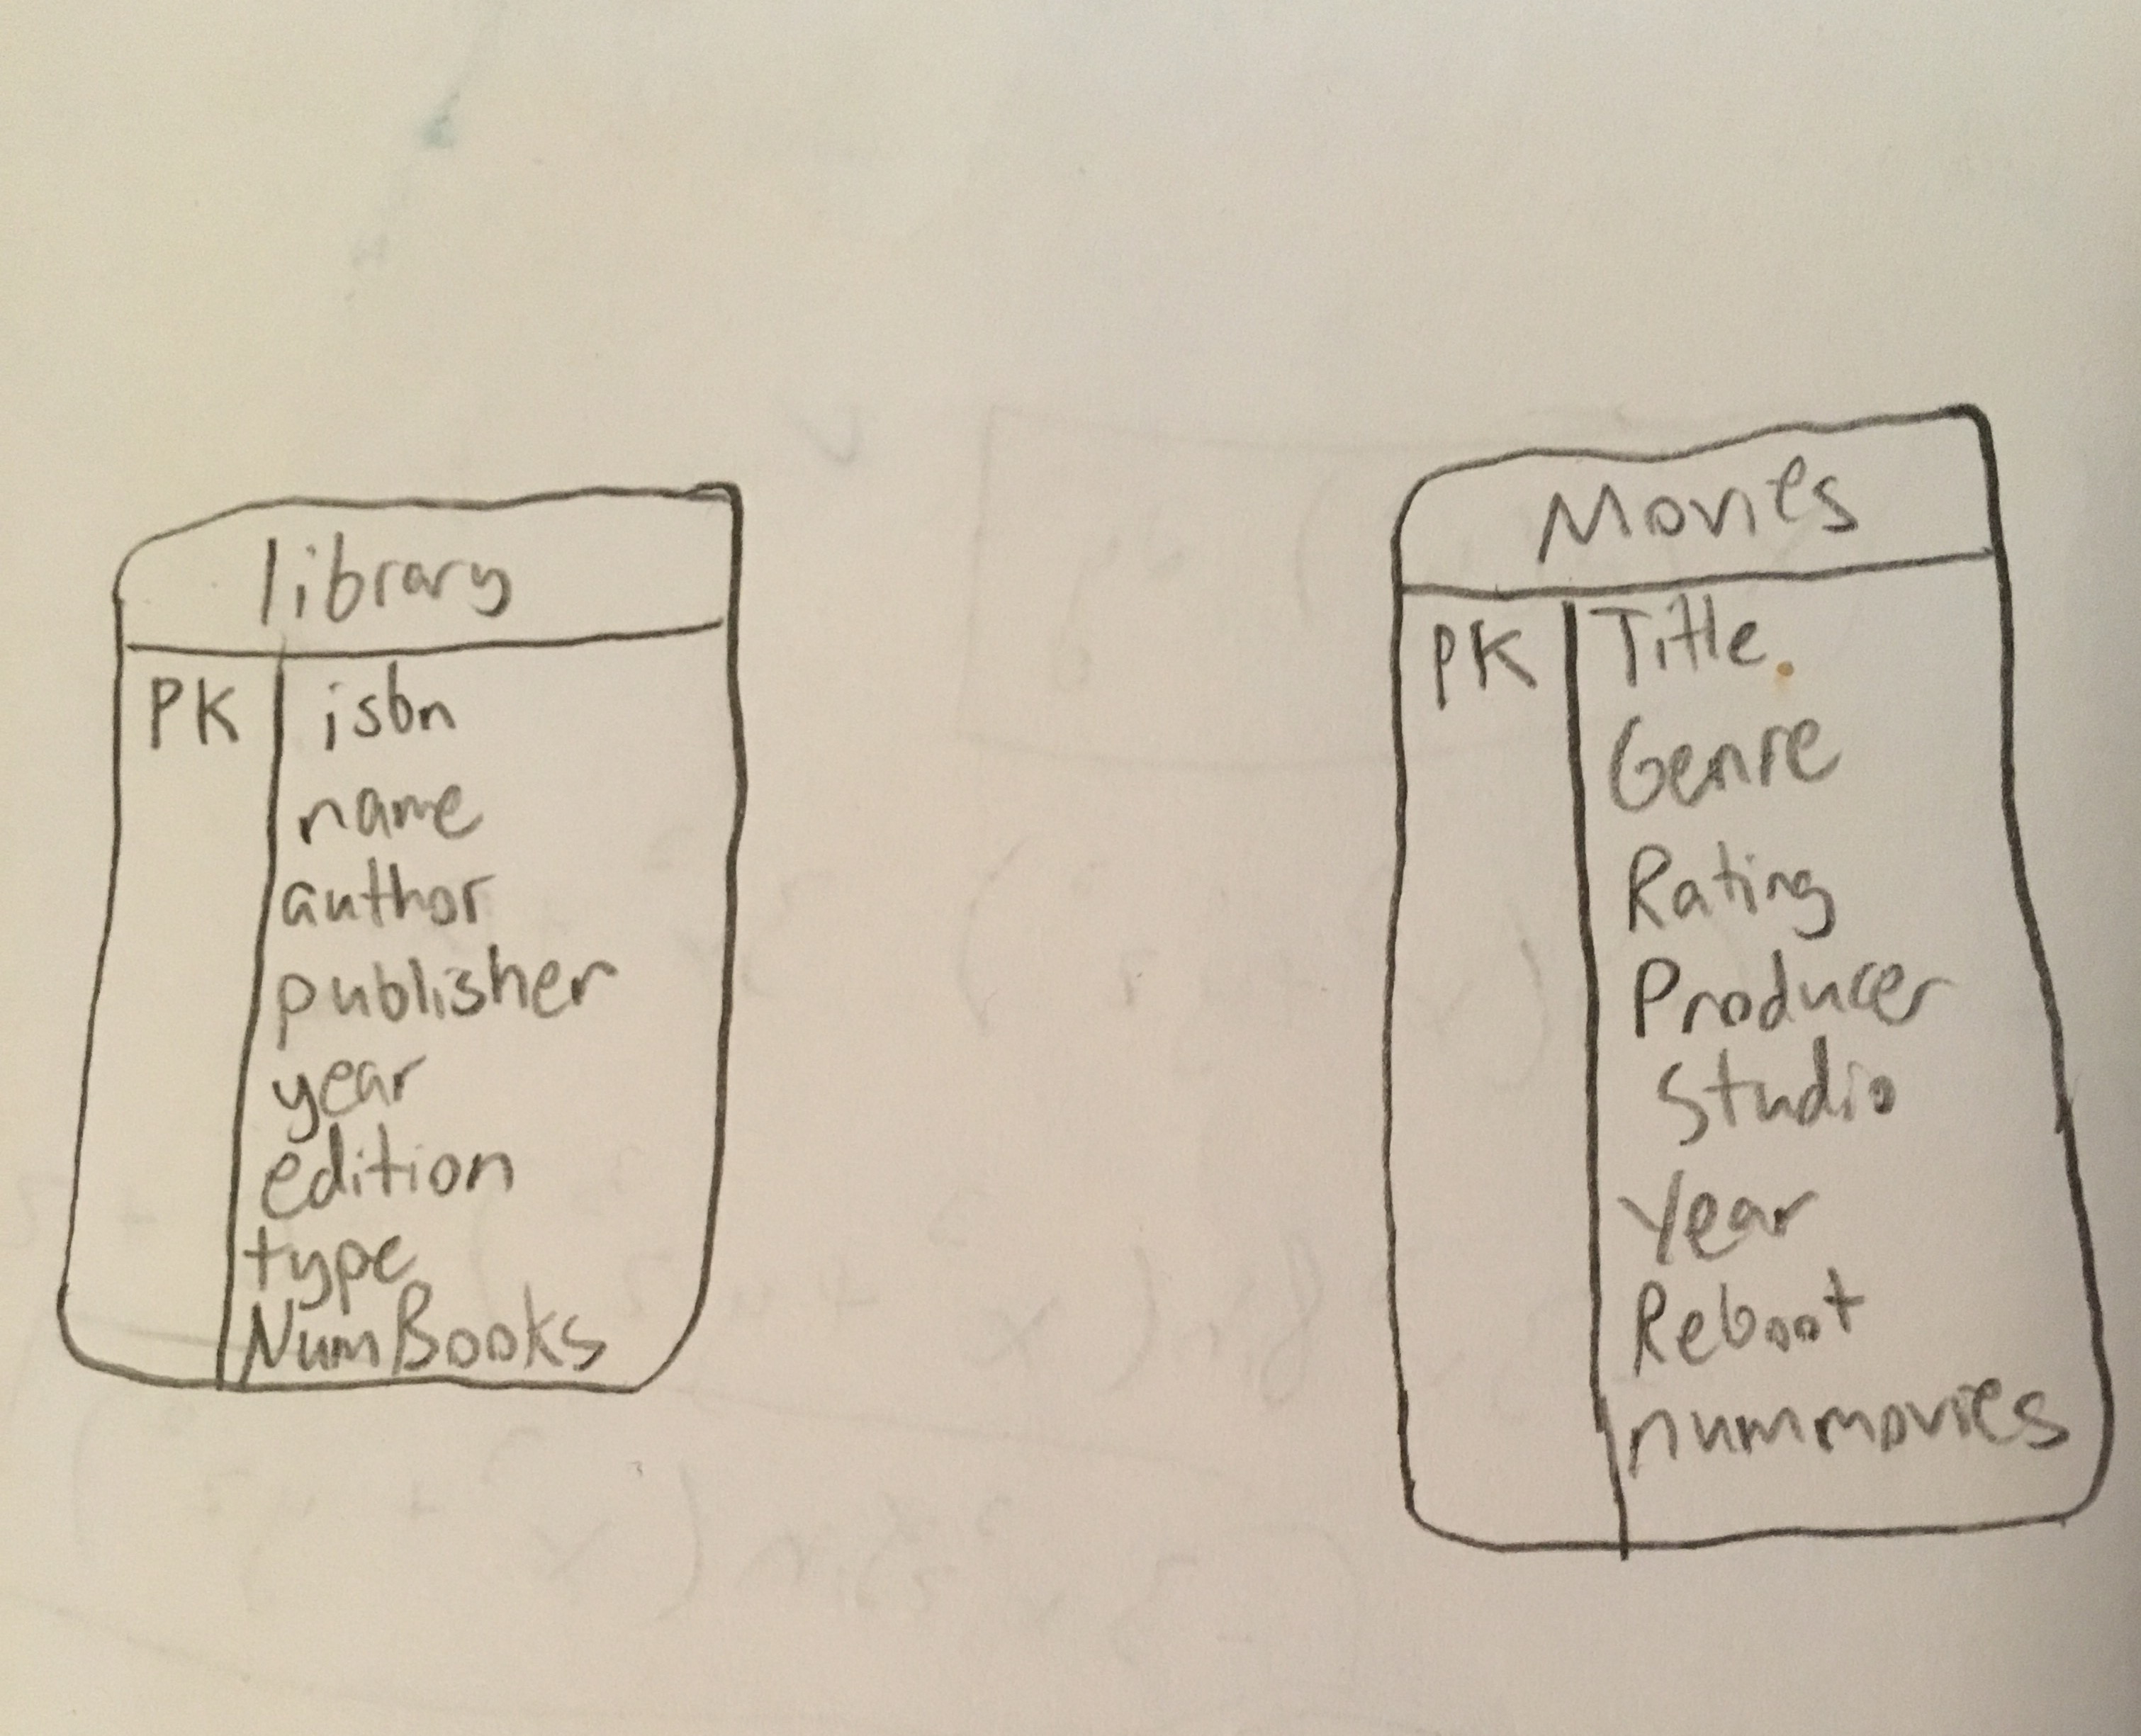 library
PK isbn
name
author
publisher
year
edition
type
NumBooks
Movies
PK Title
Genre
Rating
Producer
Studio
Year
Reboot
nummovies